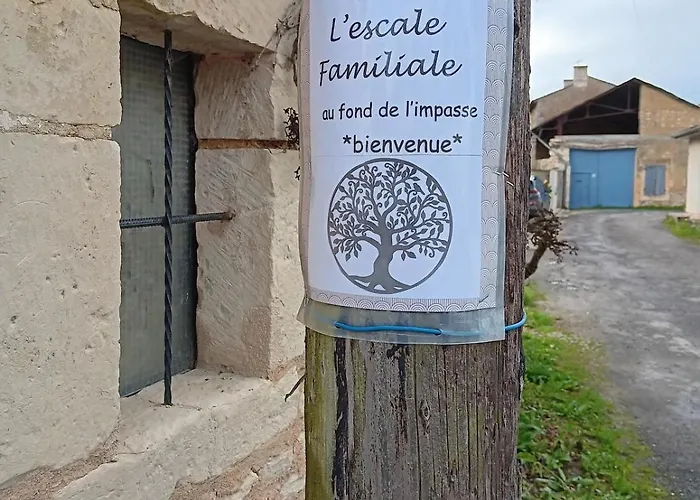 L'escale
Familiale
au fond de l'impasse
*bienvenue*